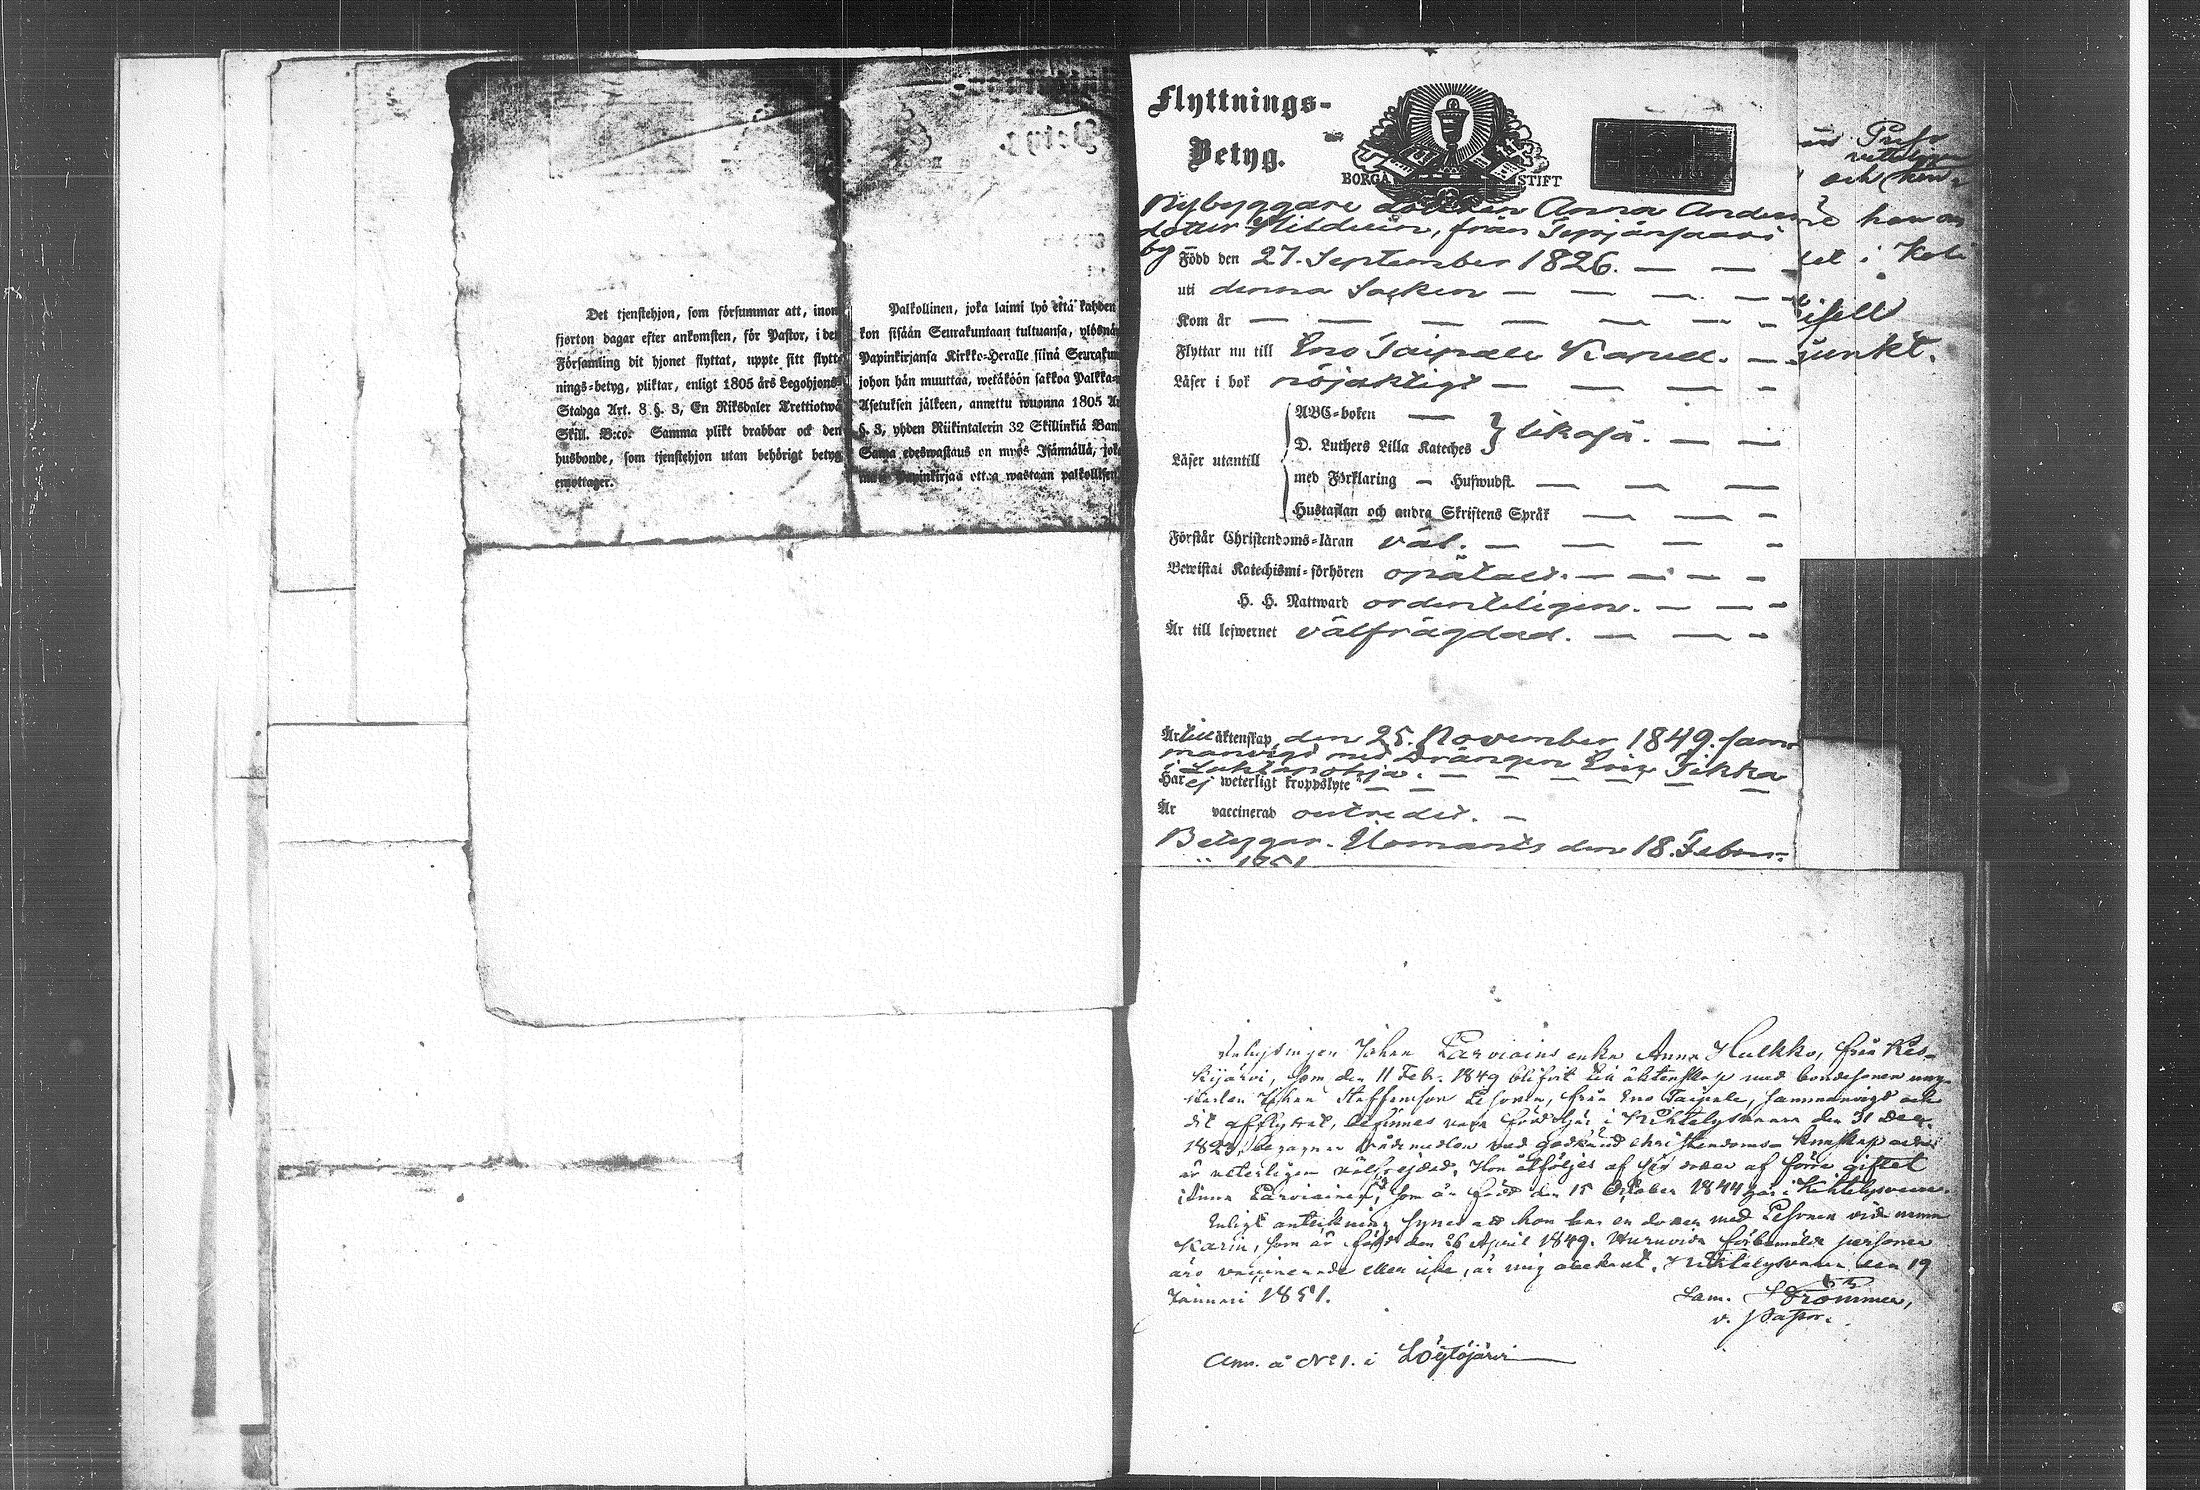 Det tjenstehjon, som försummar att, inom
fjorton dagar efter ankomsten, för Pastor, i den
Församling dit hjonet flyttat, uppte sitt flytt-
nings-betyg, pliktar, enligt 1805 års Legohjons-
Stadga Art. 8 §. 3, En Riksdaler Trettiotwå
Skill. B:co. Samma plikt drabbar ock den
husbonde, som tjenstehjon utan behörigt betyg
emottager.
Palkollinen, joka laimi lyö että kahden
kon sisään Seurakuntaan tultuansa, ylösnä
Papinkirjansa Kirkko-Heralle siinä Seurakun
johon hän muuttaa, wetäköön sakkoa Palkka-
Asetuksen jälkeen, annettu wuonna 1805 A
§. 3, yhden Riikintalerin 32 Skillinkiä Ban
Sama edeswastaus on myös Isännällä, jok
Papinkirjaa ottaa wastaan palkollisen
Flyttnings-
Betyg.
BORGÅ STIFT
Nybyggare dottren Anna Anders
dotter Mildein, från
by Född den 27. September 1826. — —
uti denna Socken — — —
Kom år — — — — —
Flyttar nu till Eno Taipale Kapell. —
Läser i bok nöjaktigt — — — —
Läser utantill
ABC-boken —
D. Luthers Lilla Kateches } likaså. — —
med Förklaring — Huswudst. — — —
Hustaflan och andra Skriftens Språk — — —
Förstår Christendoms-läran väl. — — — —
Bewistat Katechismi-förhören opåtalt. — — — —
H. H. Nattward ordenteligen. — — —
Är till lefwernet välfrägdad. — — —
Är till äktenskap den 25. November 1849. sam-
manvigd med Drängen Eric Tikka
i Luhtapohja. — — — — —
Har ej weterligt kroppslyte — —
Är vaccinerad —
Betygar. Ilomants den 18. Febru-
1851
och
han
i
junkt.
Inhysingen Johan Parviains enka Anna Hulkko, från Kes-
kijärvi, som den 11 Feb. 1849 blifvit till äktenskap med bondesonen ung-
karlen Johan Steffansson Pesonen, från Eno Taipale, sammanvigd och
dit afflyttat, befinnes vara född här i Kihtelysvaara den 31 Dec.
christendoms kunskap
är veterligen välfrejdad. Hon åtföljes af sin dotter af förra giftet
Anna Parviainen, som är född den 15 October 1844 här i Kihtelysvaara.
Enligt anteckning synes att hon har en dotter med Pesonen vid namn
Karin, som är född den 26 April 1849. Huruvida förbemälde personer
äro vaccinerade eller icke, är mig obekant. Kihtelysvaara den 19
Januari 1851.
Sam. Strömmer,
v. Pastor.
Ann. å No 1. i Löytöjärvi